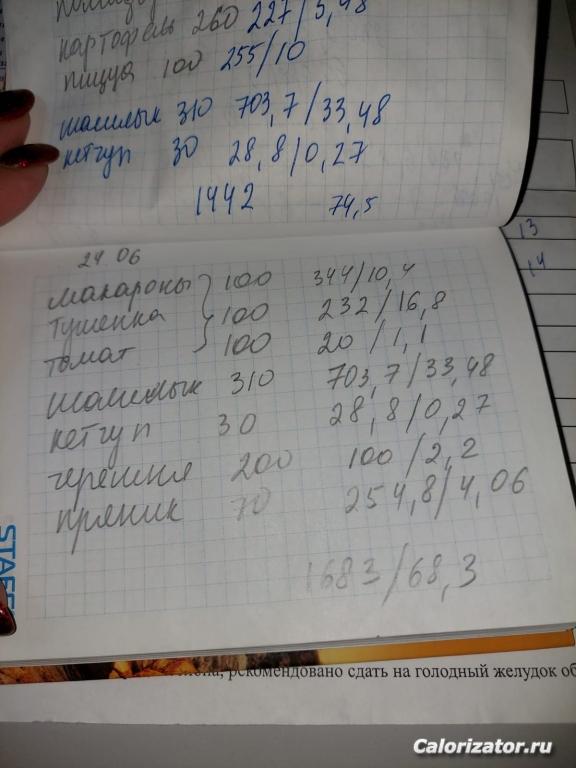 картофель 260 227/5,48
пицца 100 255/10
шашлык 310 703,7/33,48
кетчуп 30 28,8/0,27
1442 74,5
13
14
24 06
макароны 100 344/10,4
тушенка 100 232/16,8
томат 100 20/1,1
шашлык 310 703,7/33,48
кетчуп 30 28,8/0,27
черешня 200 100/2,2
пряник 70 254,8/4,06
1683/68,3
STAFF
рекомендовано сдать на голодный желудок об
Calorizator.ru